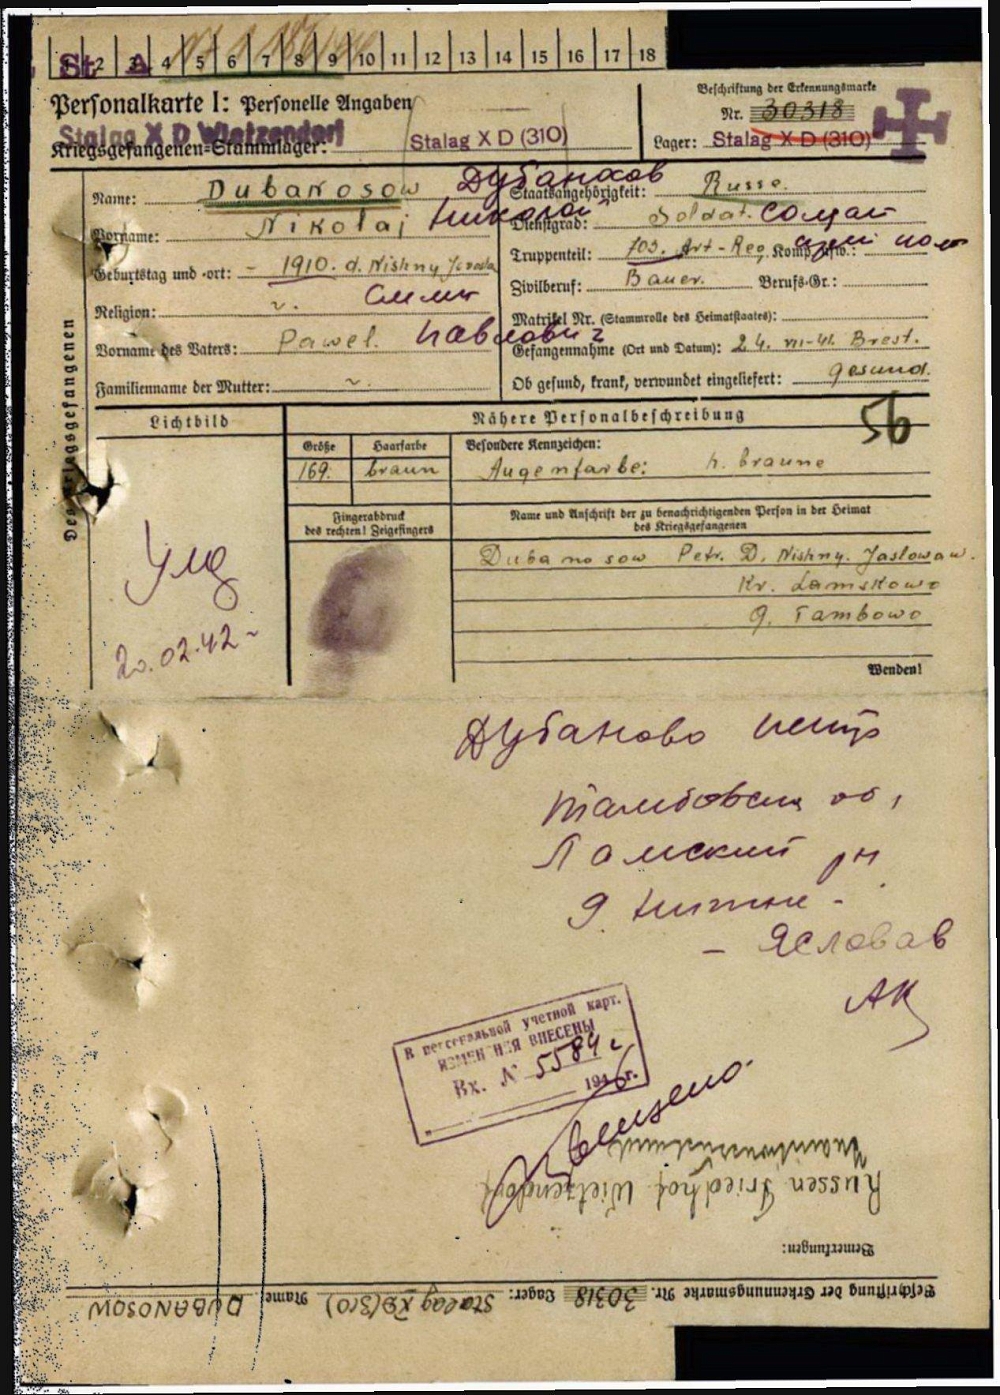 St A
1 2 3 4 5 6 7 8 9 10 11 12 13 14 15 16 17 18
Personalkarte I: Personelle Angaben
Beschriftung der Erkennungsmarke
Nr. 30318
Stalag X D Wietzendorf
Kriegsgefangenen-Stammlager: Stalag X D (310)
Lager: Stalag X D (310)
Des Kriegsgefangenen
Name: Dubanosow
Staatsangehörigkeit: Russe.
Vorname: Nikolaj Николай
Dienstgrad: Soldat. Солдат
Truppenteil: 703. Art-Reg. Komp. usw.:
Geburtstag und -ort: - 1910. d. Nishny
Zivilberuf: Bauer. Berufs-Gr.:
Religion: ~.
Matrikel Nr. (Stammrolle des Heimatstaates):
Vorname des Vaters: Pawel. Павлович
Gefangennahme (Ort und Datum): 24. VII-41. Brest.
Familienname der Mutter: ~.
Ob gesund, krank, verwundet eingeliefert: gesund.
Lichtbild
Nähere Personalbeschreibung
56
Größe
Haarfarbe
Besondere Kennzeichen:
169.
braun
Augenfarbe: h. braune
Fingerabdruck
des rechten! Zeigefingers
Name und Anschrift der zu benachrichtigenden Person in der Heimat
des Kriegsgefangenen
Dubanosow Petr. D. Nishny. Jaslowaw.
Kr. Lamskowo
G. Tambowo
20.02.42
Wenden!
Дубаново Петр
Тамбовск об,
Ламский рн
д Нижне -
- Ясловав
АК
В персональной учетной карт.
ИЗМЕНЕНИЯ ВНЕСЕНЫ
Вх. № 5584
1946 г.
Russen Friedhof Wietzendorf
Bemerkungen:
Beschriftung der Erkennungsmarke Nr. 30318 Lager: Stalag XD (310) Name DUBANOSOW